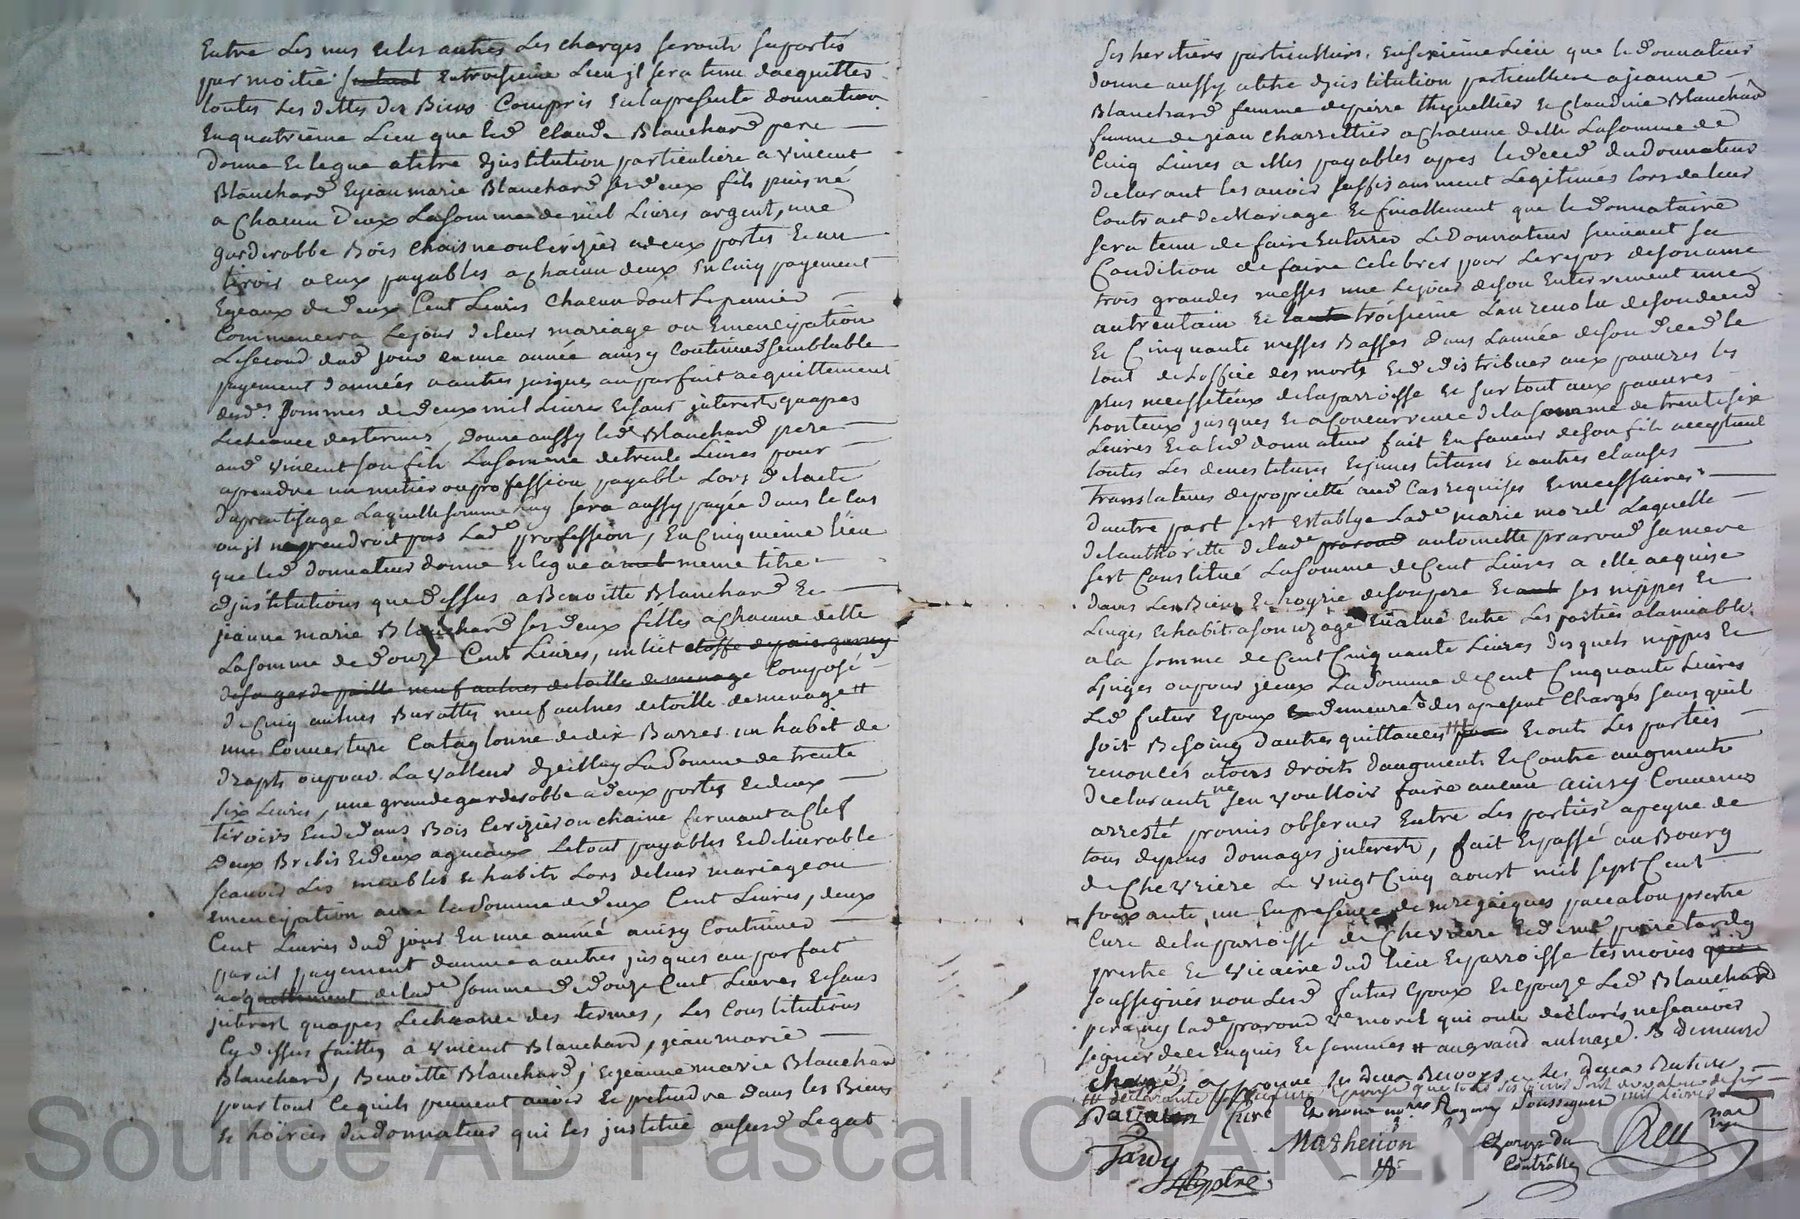 Entre Les uns et les autres Les charges seront suportés
par moitié Entroisieme Lieu jl sera tenu dacquitter
toutes Les dettes des Biens Compris En la presente donnation
En quatrieme Lieu que led Claude Blanchard pere
donne et legue a titre djnstitution particuliere a vincent
Blanchard Et jean marie Blanchard ses deux fils puisné
a Chacun deux La somme de mil Livres argent, une
garderobbe Bois Chaisne ou Cerizier a deux portes Et un
tiroir a Eux payables a Chacun deux En Cinq payement
Egeaux de deux Cent Livres Chacun dont Le premier
Commencera Le jour de leur mariage ou Emencipation
Le second dud jour en une année ainsy Continuer semblable
payement dannées a autres jusques au parfait acquittement
desd sommes de deux mil Livres Et sans jnterest quapres
Lecheance des termes, donne aussy led Blanchard pere
aud vincent son fils La somme de trente Livres pour
aprendre un metier ou profession payable Lors de lacte
daprentisage Laquelle somme luy sera aussy payée dans le cas
ou jl ne prendroit pas Lad profession, En Cinquieme lieu
que led donnateur donne Et legue a meme titre
djnstitutions que dessus a Benoitte Blanchard Et
jeanne marie Blanchard ses deux filles a Chacune delle
La somme de douze Cent Livres, un lict
Composé
de Cinq aulnes Burattes neuf aulnes de toille de menage
une Couverture Cataglonne de dix Barres un habit de
drapt ou pour La valleur djcelluy La somme de trente
six Livres, une grande garderobbe a deux portes Et deux
tiroirs En dedans Bois Cerizier ou chaine fermant a Clef
deux Brebis Et deux agneaux Le tout payables Et delivrable
scavoir Les meubles et habits Lors de leur mariage ou
emencipation avec la somme de deux Cent Livres, deux
Cent Livres dud jour En une année ainsy Continuer
pareil payement dannée a autres jusques au parfait
acquittement de lad somme de douze Cent Livres Et sans
jnterest quapres Lecheance des termes, Les Constitutions
Cy dessus faittes a vincent Blanchard, jean marie
Blanchard, Benoitte Blanchard, Et jeanne marie Blanchard
pour tout Ce quils peuvent avoir Et pretendre dans les Biens
et hoiries du donnateur qui les jnstitue ausurd Legat
ses heritiers particulliers, En sixieme Lieu que le donnateur
donne aussy a titre djnstitution particulliere a jeanne
Blanchard femme de pierre Et Claudine Blanchard
femme de jean Charrettier a Chacune delle La somme de
Cinq Livres a elles payables apres le deced du donnateur
declarant les avoir suffisamment Legitimes lors de leur
Contract de Mariage Et finallement que le donnataire
sera tenu de faire Enterrer Le donnateur suivant sa
Condition de faire Celebrer pour Le repos de son ame
trois grandes messes une Le jour de son Enterrement une
autrentain Et la troisieme Lan revolu de son deced
Et Cinquante messes Basses dans Lannée de son deced le
tout de Loffice des morts Et de distribuer aux pauvres les
plus necessiteux de la parroisse Et sur tout aux pauvres
honteux jusques Et a Concurrence de la somme de trente six
Livres Et a led donnateur fait En faveur de son fils acceptant
toutes Les devestitures Et jnvestitures Et autres clauses
translatives de proprietté aud Cas requises Et necessaires
dautre part sest Establye Lad marie morel Laquelle
de lauthoritté de lad antoinette praroud sa mere
sest Constitué La somme de Cent Livres a elle acquise
dans Les Biens Et hoyrie de son pere Et ses nippes Et
Linges Et habit a son uzage Evalué Entre Les parties a lamiable
a la somme de Cent Cinquante Livres desquels nippes Et
Linges ou pour jceux La somme de Cent Cinquante Livres
Led futur Epoux demeure des apresent Chargés sans quil
soit Besoing dautres quittances Et ont Les parties
renoncés a tous droits daugments Et Contre augments
declarants ne sen voulloir faire aucun ainsy Convenus
arresté promis observer Entre Les parties a peyne de
tous depens domages jnterests, fait Et passé au Bourg
de Chevriere Le vingt Cinq aoust mil sept Cent
soixante un En presence de mre jacques paccalon prestre
Curé de la parroisse de Chevriere Et de mre pierre tardy
prestre Et vicaire dud lieu Et parroisse tesmoins
soussignés non Lesd futur Epoux Et Epouze Led Blanchard
pere ny lad praroud ve morel qui ont déclarés ne scavoir
signer de ce Enquis Et sommés au grand aulnage.
aprouvé Les deux Renvoys
Curé
Tardy
Mazhenon
Controlle
Rey